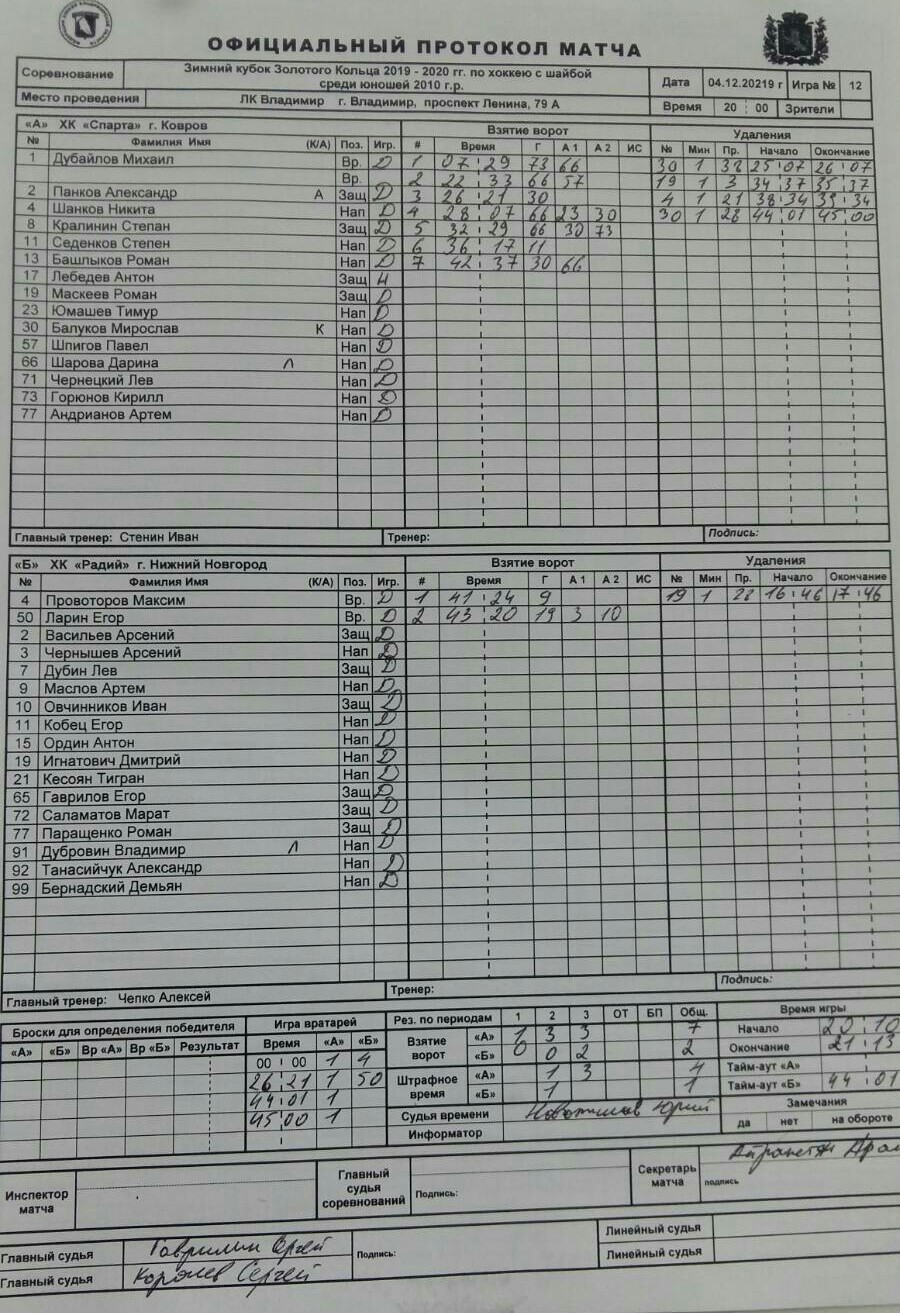 ОФИЦИАЛЬНЫЙ ПРОТОКОЛ МАТЧА
Соревнование Зимний кубок Золотого Кольца 2019 - 2020 гг. по хоккею с шайбой среди юношей 2010 г.р. Дата 04.12.20219 г Игра № 12
Место проведения ЛК Владимир г. Владимир, проспект Ленина, 79 А Время 20 00 Зрители
«А» ХК «Спарта» г. Ковров Взятие ворот Удаления
№ Фамилия Имя (К/А) Поз. Игр. # Время Г А 1 А 2 ИС № Мин Пр. Начало Окончание
1 Дубайлов Михаил Вр. D 1 07 29 73 66 30 1 38 25 07 26 07
Вр. 2 22 33 66 57 19 1 3 34 37 35 37
2 Панков Александр А Защ D 3 26 21 30 4 1 21 38 34 39 34
4 Шанков Никита Нап D 4 28 07 66 23 30 30 1 28 44 01 45 00
8 Кралинин Степан Защ D 5 32 29 66 30 73
11 Седенков Степен Нап D 6 36 17 11
13 Башлыков Роман Нап D 7 42 37 30 66
17 Лебедев Антон Защ Н
19 Маскеев Роман Защ D
23 Юмашев Тимур Нап D
30 Балуков Мирослав К Нап D
57 Шпигов Павел Нап D
66 Шарова Дарина Л Нап D
71 Чернецкий Лев Нап D
73 Горюнов Кирилл Нап D
77 Андрианов Артем Нап D
Главный тренер: Стенин Иван Тренер: Подпись:
«Б» ХК «Радий» г. Нижний Новгород Взятие ворот Удаления
№ Фамилия Имя (К/А) Поз. Игр. # Время Г А 1 А 2 ИС № Мин Пр. Начало Окончание
4 Провоторов Максим Вр. D 1 41 24 9 19 1 22 16 46 17 46
50 Ларин Егор Вр. D 2 43 20 19 3 10
2 Васильев Арсений Защ D
3 Чернышев Арсений Нап D
7 Дубин Лев Защ D
9 Маслов Артем Нап D
10 Овчинников Иван Защ D
11 Кобец Егор Нап D
15 Ордин Антон Нап D
19 Игнатович Дмитрий Нап D
21 Кесоян Тигран Нап D
65 Гаврилов Егор Защ D
72 Саламатов Марат Защ D
77 Паращенко Роман Защ D
91 Дубровин Владимир Л Нап D
92 Танасийчук Александр Нап D
99 Бернадский Демьян Нап D
Главный тренер: Чепко Алексей Тренер: Подпись:
Броски для определения победителя Игра вратарей Рез. по периодам 1 2 3 ОТ БП Общ. Время игры
«А» «Б» Вр «А» Вр «Б» Результат Время «А» «Б» Взятие ворот «А» 1 3 3 7 Начало 20 10
00 00 1 4 «Б» 0 0 2 2 Окончание 21 13
26 21 1 50 Штрафное время «А» 1 3 4 Тайм-аут «А»
44 01 1 «Б» 1 1 Тайм-аут «Б» 44 01
45 00 1 Судья времени Юрий Замечания
Информатор да нет на обороте
Инспектор матча Главный судья соревнований Подпись: Секретарь матча подпись
Главный судья Гаврилин Подпись: Линейный судья
Главный судья Королев Сергей Линейный судья